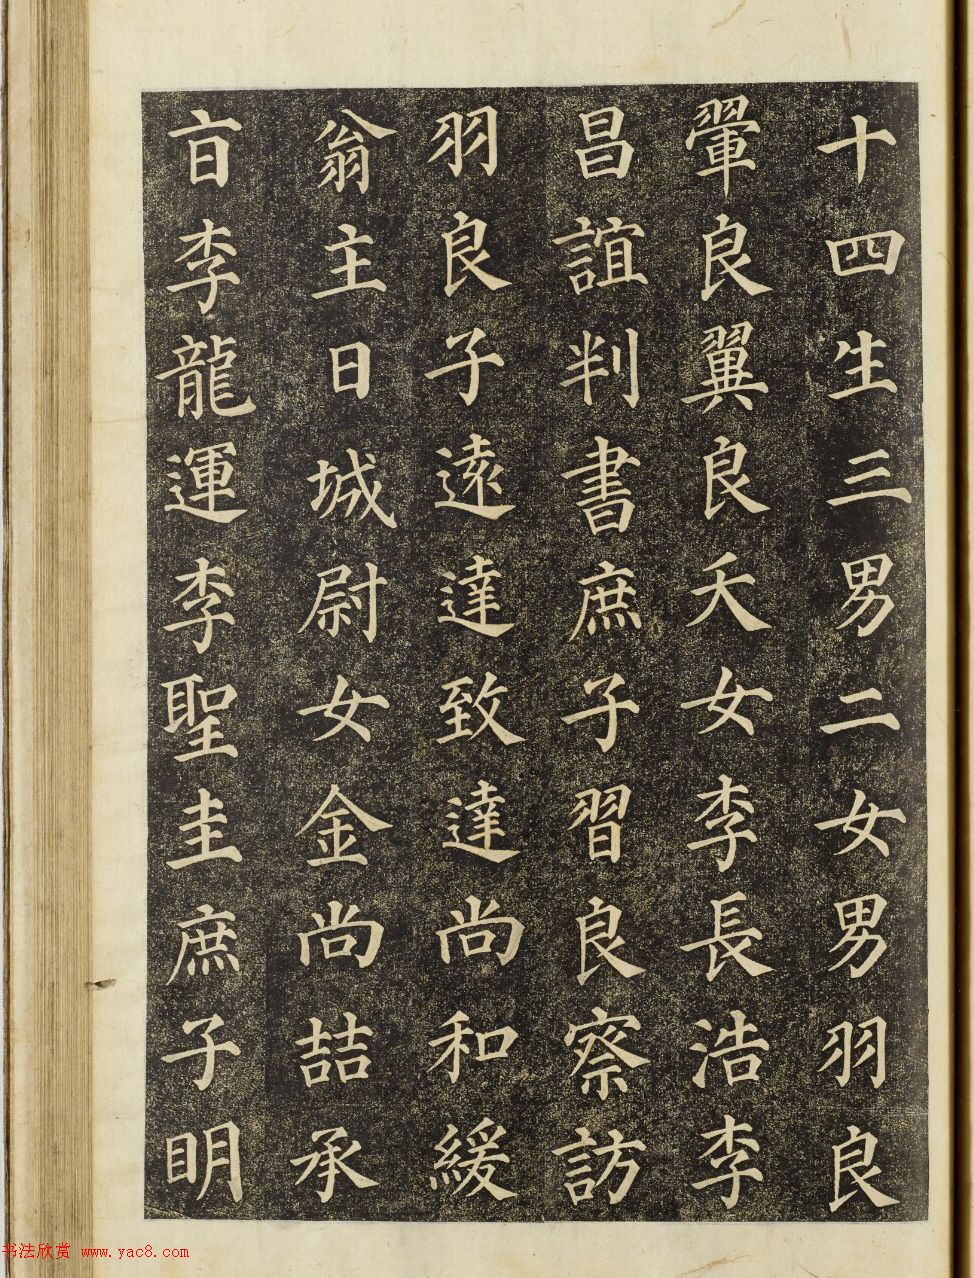 十四生三男二女男羽良
翬良翼良夭女李長浩李
昌誼判書庶子習良察訪
羽良子遠達致達尚和緩
翁主日城尉女金尚喆承
旨李龍運李聖圭庶子明
书法欣赏 www.yac8.com